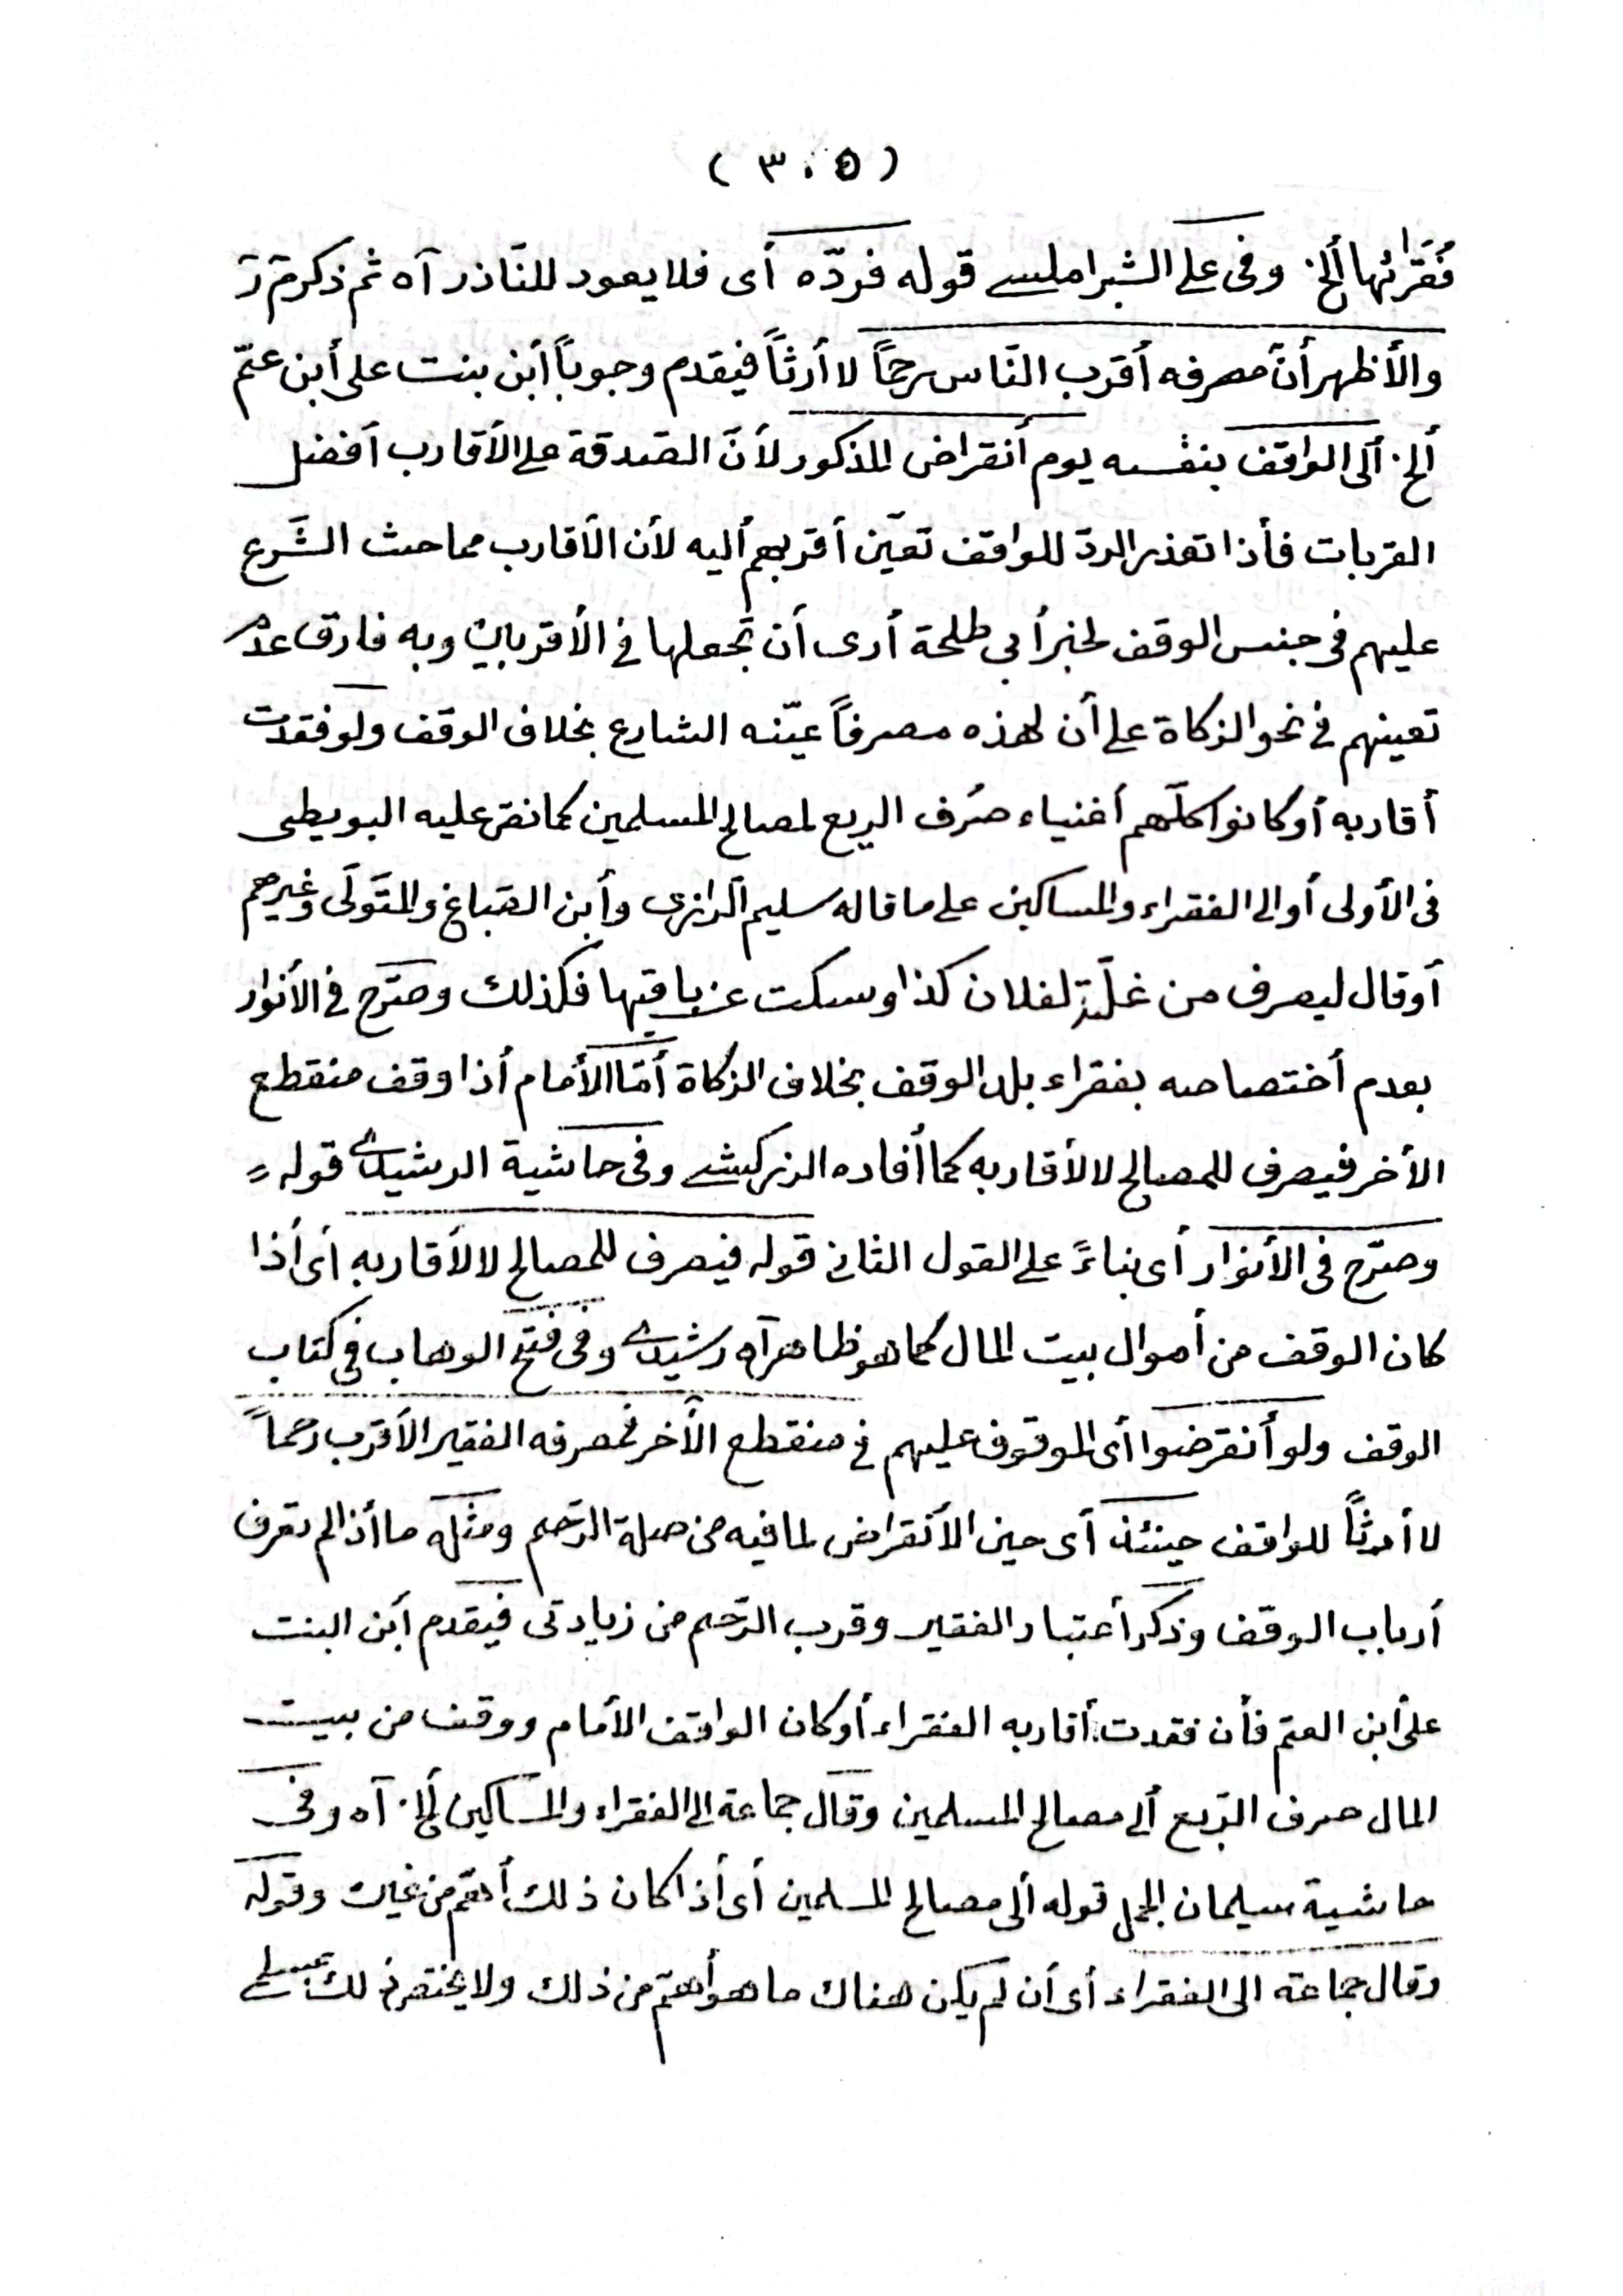 ( ٣٠٥ )
فُقَرائها ألخ. وفى على الشبراملسى قوله فردّه أى فلا يعود للنّاذر آه ثم ذكر مَ رَ
والأظهر أنّ مصرفه أقرب النّاس رحماً لا أرثاً فيقدم وجوباً أبن بنت على أبن عمّ
ألخ. ألى الواقف بنفسه يوم أنقراض المذكور لأنّ الصّدقة على الأقارب أفضل
القربات فأذا تعذر الردّ للواقف تعيّن أقربهم أليه لأن الأقارب مما حث الشّرع
عليهم فى جنس الوقف لخبر أبى طلحة أرى أن تجعلها فى الأقربين وبه فارق عدم
تعينهم فى نحو الزكاة على أن لهذه مصرفاً عيّنه الشارع بخلاف الوقف ولو فقدت
أقاربه أو كانوا كلّهم أغنياء صُرف الريع لمصالح المسلمين كما نصّ عليه البويطى
فى الأولى أو الى الفقراء والمساكين على ما قاله سليم الرازى وأبن الصّباغ والمتَولّى وغيرهم
أو قال ليصرف من غلّته لفلان كذا وسكت عن باقيها فكذلك وصّرح فى الأنوار
بعدم أختصاصه بفقراء بلد الوقف بخلاف الزكاة أمّا الأمام أذا وقف منقطع
الأخر فيصرف للمصالح لا لأقاربه كما أفاده الزركشى وفى حاشية الرشيدى قوله
وصرّح فى الأنوار أى بناءً على القول الثانى قوله فيصرف للمصالح لا لأقاربه أى أذا
كان الوقف من أموال بيت المال كما هو ظاهر آه رشيدى وفى فتح الوهاب فى كتاب
الوقف ولو أنقرضوا أى الموقوف عليهم فى منقطع الآخر فمصرفه الفقير الأقرب رحماً
لا أرثاً للواقف حينئذ أى حين الأنقراض لما فيه من صلة الرّحم ومثله ما أذا لم تعرف
أرباب الوقف وذكر أعتبار الفقير وقرب الرّحم من زيادتى فيقدم أبن البنت
على أبن العمّ فأن فقدت أقاربه الفقراء أو كان الواقف الأمام ووقف من بيت
المال صرف الرّيع ألى مصالح المسلمين وقال جماعة الى الفقراء والمساكين ألخ. آه وفى
حاشية سليمان الجمل قوله ألى مصالح المسلمين أى أذا كان ذلك أهمّ من غيره وقوله
وقال جماعة الى الفقراء أى أن لم يكن هناك ما هو أهمّ من ذلك ولا يختص ذلك